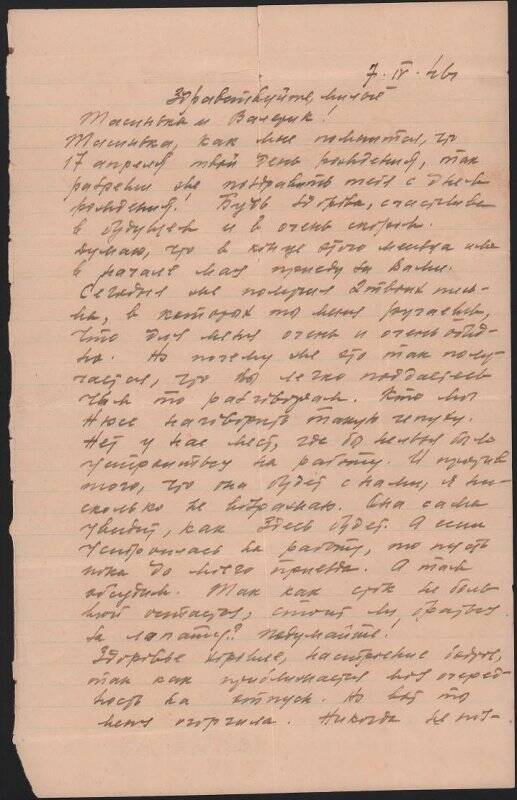 7. IV. 46
Здравствуйте, милые
Тасинька и Валерик!
Тасинька, как мне помнится, что
17 апреля твой день рождения, так
разреши же поздравить тебя с днем
рождения! Будь здорова, счастлива
в будущем и в очень скором.
Думаю, что в конце этого месяца или
в начале мая приеду за Вами.
Сегодня же получил 2 твоих пись-
ма, в которых ты меня ругаешь,
что для меня очень и очень обид-
но. Но почему же это так полу-
чается, что Вы легко поддаетесь
чьим то разговорам. Кто мог
Нюсе наговорить такую чепуху.
Нет у нас мест, где бы нельзя было
устроиться на работу. И против
того, что она будет с нами, я ни-
сколько не возражаю. Она сама
увидит, как здесь будет. А если
устроилась на работу, то пусть
пока до моего приезда. А там
обсудим. Так как срок не боль-
шой остается, стоит ли браться
за Подумайте!
Здоровье хорошее, настроение бодрое,
так как приближается моя очеред-
ность на отпуск. Но вот ты
меня огорчила. Никогда не